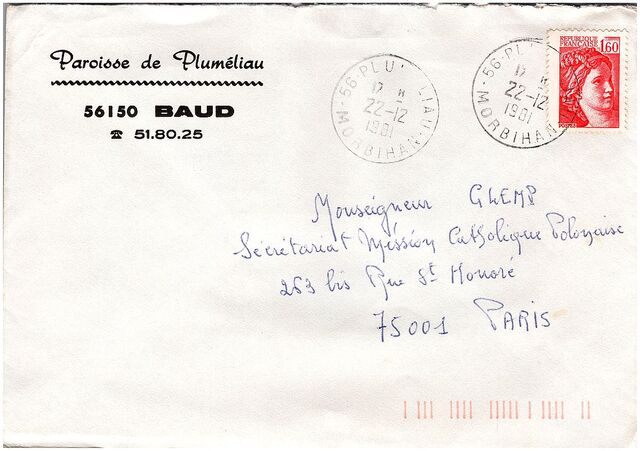 Paroisse de Pluméliau
56150 BAUD
☎ 51.80.25
56-PLUMELIAU
17 H
22-12
1981
MORBIHAN
56-PLU
17 H
22-12
1981
MORBIHAN
REPUBLIQUE
FRANÇAISE
1,60
POSTES
Monseigneur GLEMP
Sécrétariat Mission Catholique Polonaise
263 bis Rue St Honoré
75001 PARIS